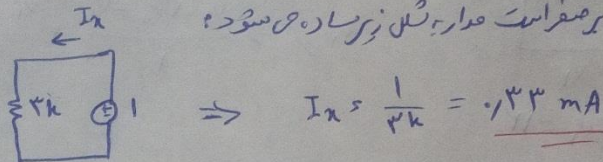 بر صفر است مدار به شکل زیر ساده می شود:
Ix
۳k
1
⇒ Ix = 1/۳k = ۰٫۳۳ mA